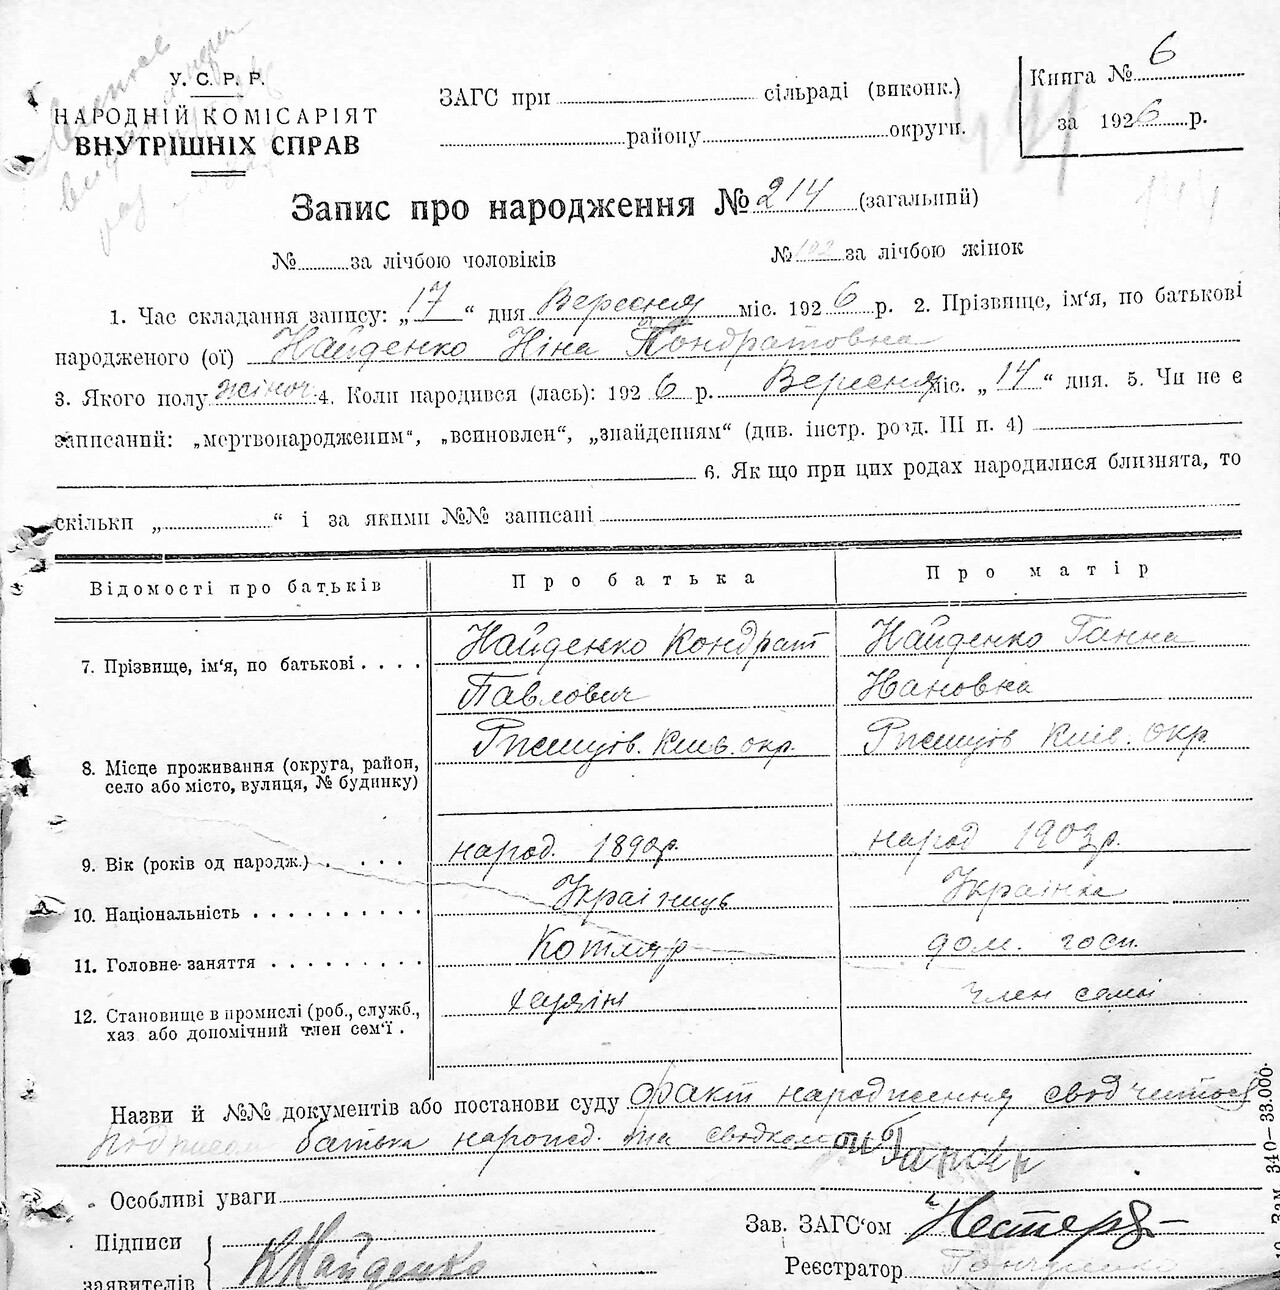 У. С. Р. Р.
НАРОДНІЙ КОМІСАРІЯТ
ВНУТРІШНІХ СПРАВ
ЗАГС при сільраді (виконк.)
району округи.
Книга № 6
за 1926 р.
144
Запис про народження № 214 (загальний)
№ за лічбою чоловіків № 102 за лічбою жінок
1. Час складання запису: „17“ дня Вересня міс. 1926 р. 2. Прізвище, ім‘я, по батькові
народженого (ої) Найденко Ніна Кондратовна
3. Якого полу жіноч. 4. Коли народився (лась): 1926 р. Вересня міс. „14“ дня. 5. Чи не є
записаний: „мертвонародженим“, „всиновлен“, „знайденням“ (див. інстр. розд. III п. 4)
6. Як що при цих родах народилися близнята, то
скільки „ “ і за якими №№ записані
Відомості про батьків Про батька Про матір
7. Прізвище, ім‘я, по батькові . . . . Найденко Кондрат Найденко Ганна
Павлович Ивановна
8. Місце проживання (округа, район, Ржищів. Київ. окр. Ржищів Київ. окр
село або місто, вулиця, № будинку)
9. Вік (років од народж.) . . . . . народ. 1890р. народ 1903р.
10. Національність . . . . . . . . . . Українець Українка
11. Головне-заняття . . . . . . . . . Котляр дом. госп.
12. Становище в промислі (роб., служб., хазяїн член семьі
хаз або допомічний член сем‘ї .
Назви й №№ документів або постанови суду Факт народження сводчиться
подписом батька народ. та сводком
Особливі уваги
Підписи
заявителів К Найденко
Зав. ЗАГС‘ом Нестер
Реєстратор
Зам. 340—33.000.